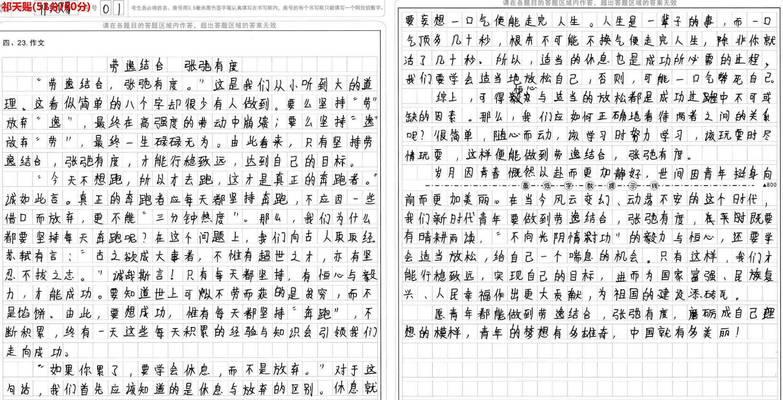 祁天赐(51分/60分)
01
请在各题目的答题区域内作答，超出答题区域的答案无效
四、23. 作文
劳逸结合 张弛有度
“劳逸结合，张弛有度。”这是我们从小听到大的道
理。这看似简单的八个字却很少有人做到。要么坚持“劳”
放弃“逸”，最终在高强度的劳动中崩溃；要么坚持“逸”
放弃“劳”，最终一生碌碌无为。由此看来，只有坚持劳
逸结合，张弛有度，才能行稳致远，达到自己的目标。
“今天不想跑，所以才去跑，这才是真正的奔跑者。”
诚如此言。真正的奔跑者应每天都坚持奔跑，不应因一些
借口而放弃，更不能“三分钟热度”。那么，我们为什么
都要坚持每天奔跑呢？在这个问题上，我们向古人取取经
苏轼有言：“古之欲成大事者，不惟有超世之才，亦有坚
忍不拔之志。”诚哉斯言！只有每天都坚持，有恒心与毅
力，才能成功。要知道世上可以不劳而获的是贫穷，而不
是馅饼。由此，要想成功，惟有每天都坚持“奔跑”，不
断积累，终有一天这些每天积累的经验与知识会引领我们
走向成功。
“如果你累了，要学会休息，而不是放弃。”对于这
句话，我们首先应该知道的是休息与放弃的区别。休息就
请在各题目的答题区域内作答，超出答题区域的答案无效
要妄想一口气便能走完人生。人生是一辈子的事，而一口
气顶多几十秒，根本不可能不换气便走完人生，除非你就
活了几十秒。所以，适当的休息也是成功所必要的过程，
我们要学会适当地放松自己，否则，可能一口气憋死自己。
恒心
综上，可得毅力与适当的放松都是成功之路中不可或
缺的因素。那么，我们应如何正确地看待两者之间的关系
呢？很简单，随心而动，该学习时努力学习，该玩耍时尽
情玩耍，这样便能做到劳逸结合，张弛有度。
岁月因青春慨然以赴而更加静好，世间因青年挺身向
▲800
前而更加美丽。在当今风云变幻、动荡不安的这个时代，
我们新时代青年要做到劳逸结合，张弛有度，
有晴耕雨读，“不向光阴惰寸功”的毅力与恒心，还要学
会适当放松，给自己一个喘息的机会。只有这样，我们才
能行稳致远，实现自己的目标，进而为国家富强、民族复
兴、人民幸福作出更大贡献，为祖国的建设添砖瓦。
愿青年都能做到劳逸结合，张弛有度，磨砺成自己理
想的模样，青年的梦想有多雄奇，中国就有多美丽！